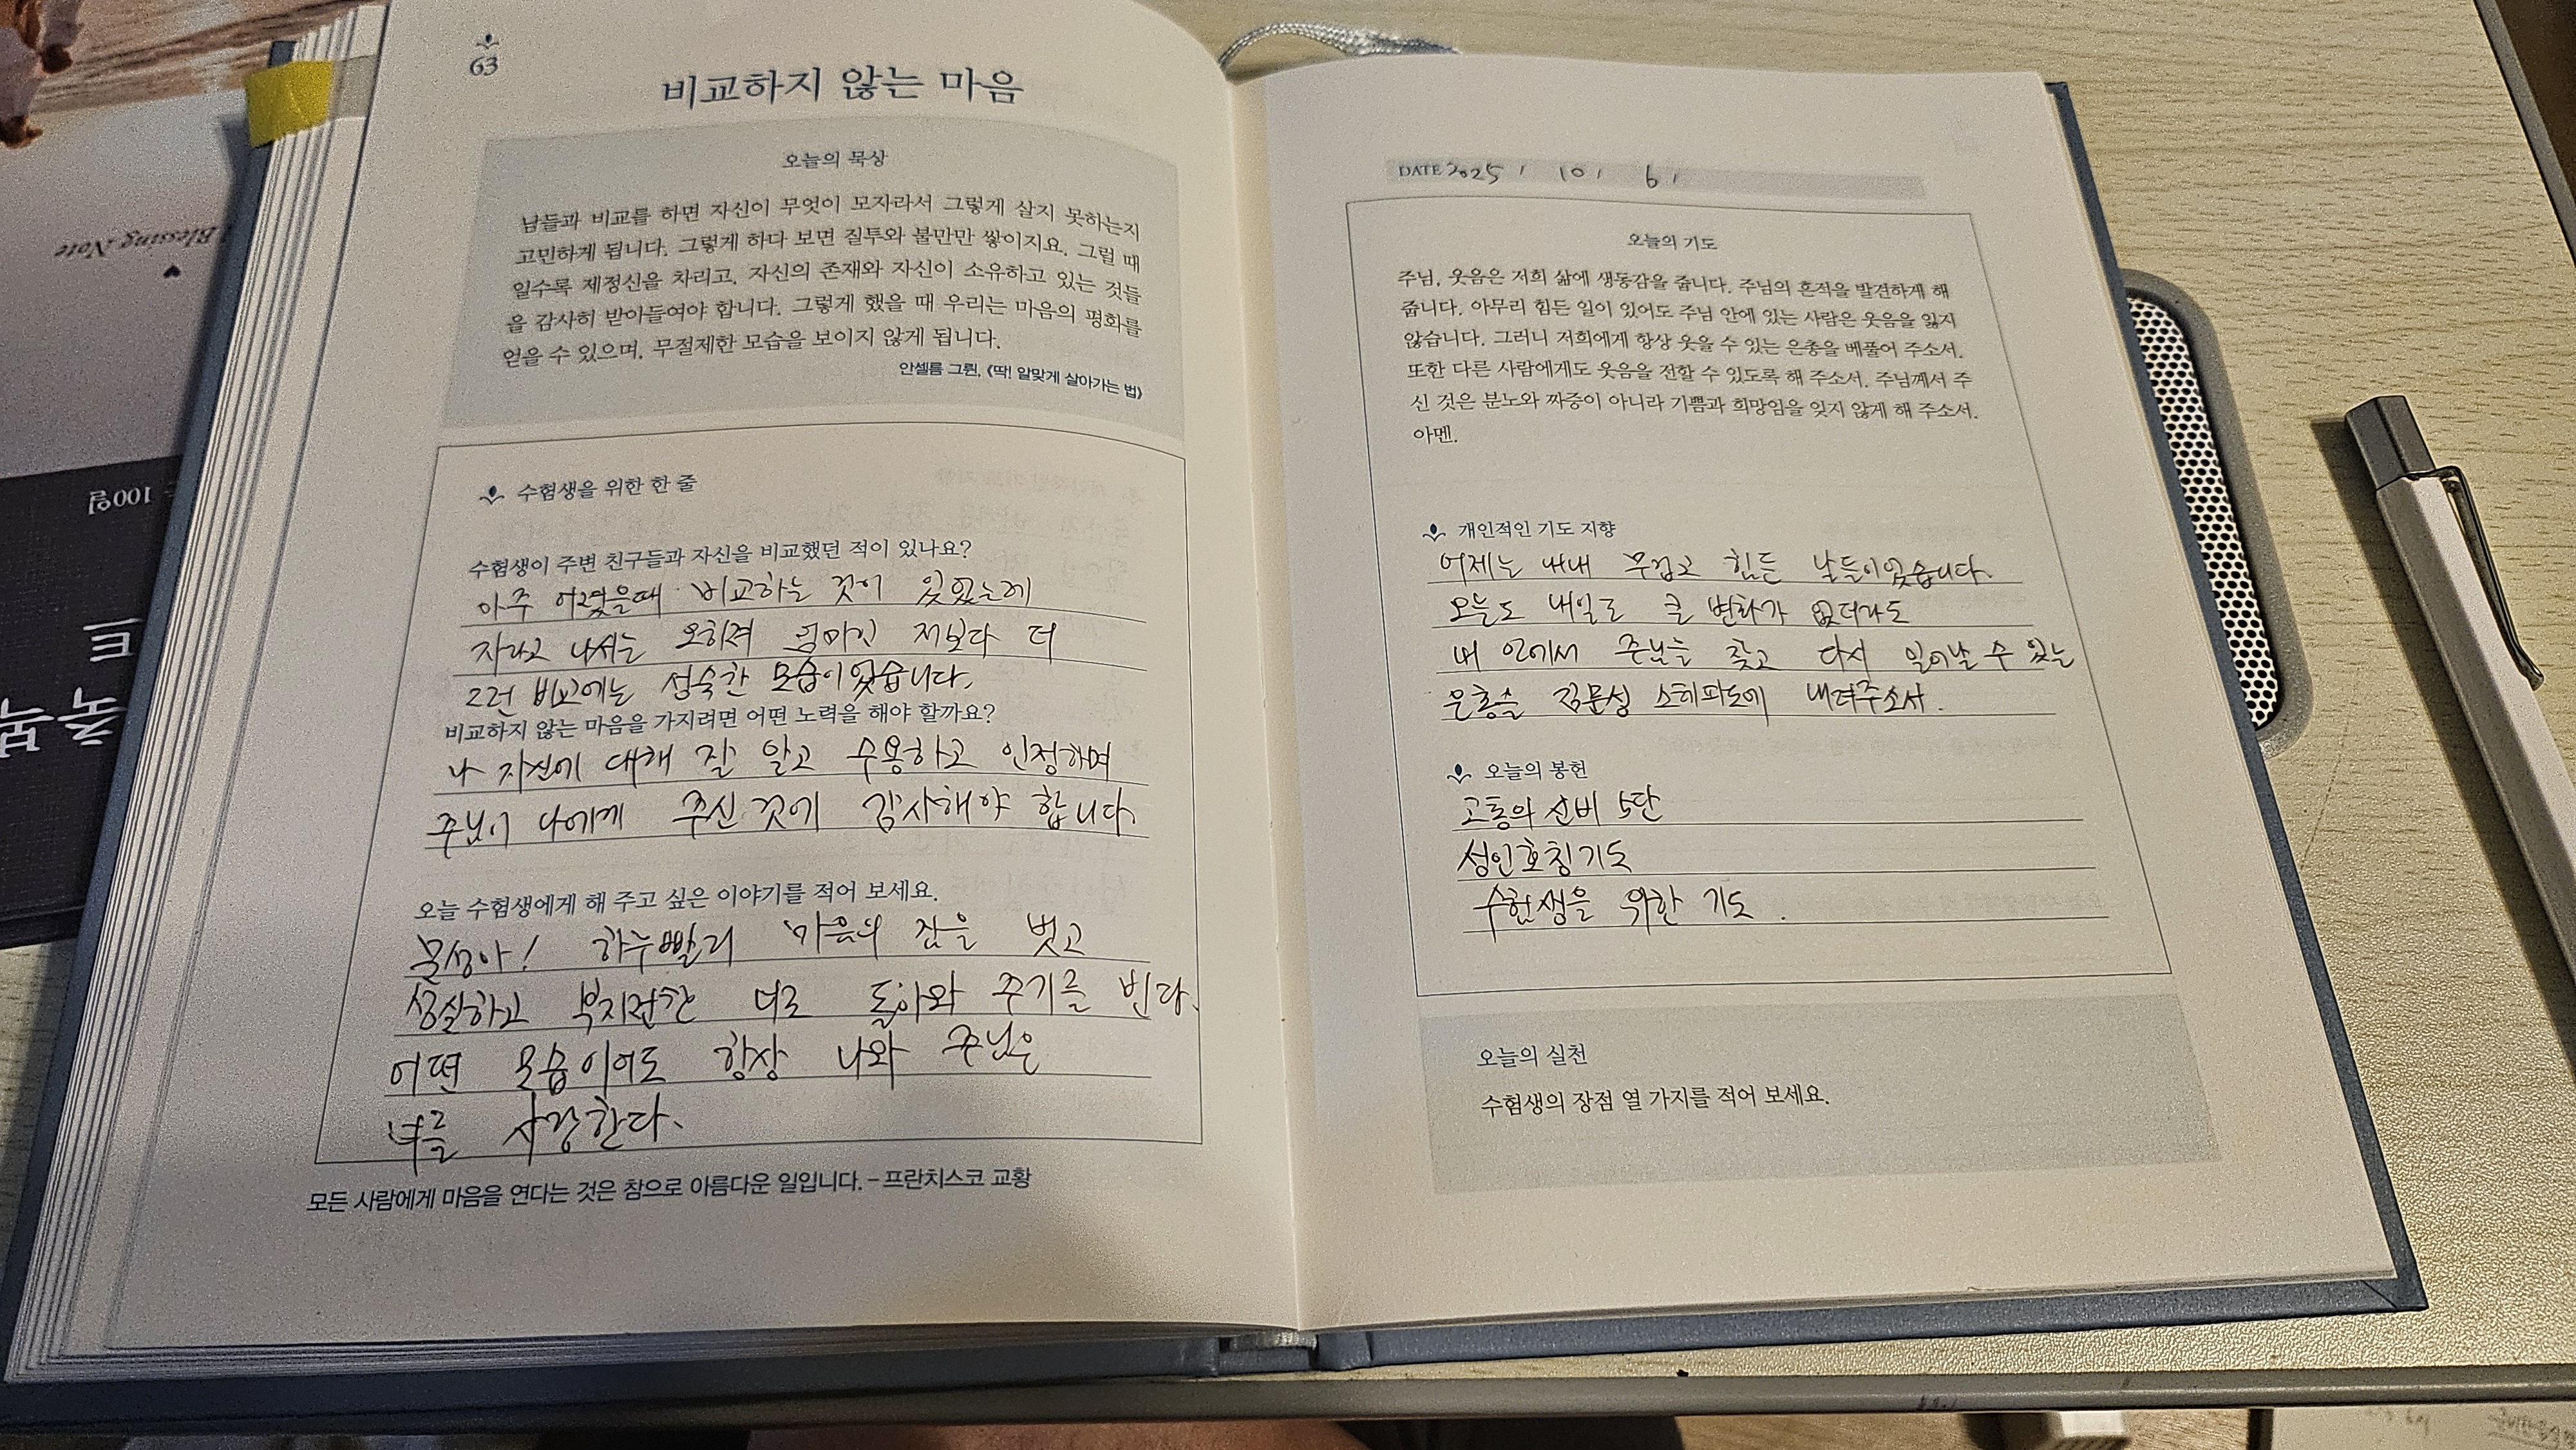 63
비교하지 않는 마음
오늘의 묵상
남들과 비교를 하면 자신이 무엇이 모자라서 그렇게 살지 못하는지
고민하게 됩니다. 그렇게 하다 보면 질투와 불만만 쌓이지요. 그럴 때
일수록 제정신을 차리고, 자신의 존재와 자신이 소유하고 있는 것들
을 감사히 받아들여야 합니다. 그렇게 했을 때 우리는 마음의 평화를
얻을 수 있으며, 무절제한 모습을 보이지 않게 됩니다.
안셀름 그륀, 《딱! 알맞게 살아가는 법》
수험생을 위한 한 줄
수험생이 주변 친구들과 자신을 비교했던 적이 있나요?
아주 어렸을때 비교하는 것이 있었는데
자라고 나서는 오히려 엄마인 저보다 더
그런 비교에는 성숙한 모습이었습니다.
비교하지 않는 마음을 가지려면 어떤 노력을 해야 할까요?
나 자신에 대해 잘 알고 수용하고 인정하며
주님이 나에게 주신 것에 감사해야 합니다.
오늘 수험생에게 해 주고 싶은 이야기를 적어 보세요.
문성아! 하루빨리 마음의 짐을 벗고
성실하고 북지런한 너로 돌아와 주기를 빈다.
어떤 모습이어도 항상 나와 주님은
너를 사랑한다.
모든 사람에게 마음을 연다는 것은 참으로 아름다운 일입니다. - 프란치스코 교황
DATE 2025 / 10 / 6 /
오늘의 기도
주님, 웃음은 저희 삶에 생동감을 줍니다. 주님의 흔적을 발견하게 해
줍니다. 아무리 힘든 일이 있어도 주님 안에 있는 사람은 웃음을 잃지
않습니다. 그러니 저희에게 항상 웃을 수 있는 은총을 베풀어 주소서.
또한 다른 사람에게도 웃음을 전할 수 있도록 해 주소서. 주님께서 주
신 것은 분노와 짜증이 아니라 기쁨과 희망임을 잊지 않게 해 주소서.
아멘.
개인적인 기도 지향
어제는 내내 무겁고 힘든 날들이었습니다.
오늘도 내일도 큰 변화가 없더라도
내 안에서 주님을 찾고 다시 일어날 수 있는
은총을 김문성 스테파노에 내려주소서.
오늘의 봉헌
고통의 신비 5단
성인호칭기도
수험생을 위한 기도.
오늘의 실천
수험생의 장점 열 가지를 적어 보세요.
Blessing Note
100일
노트